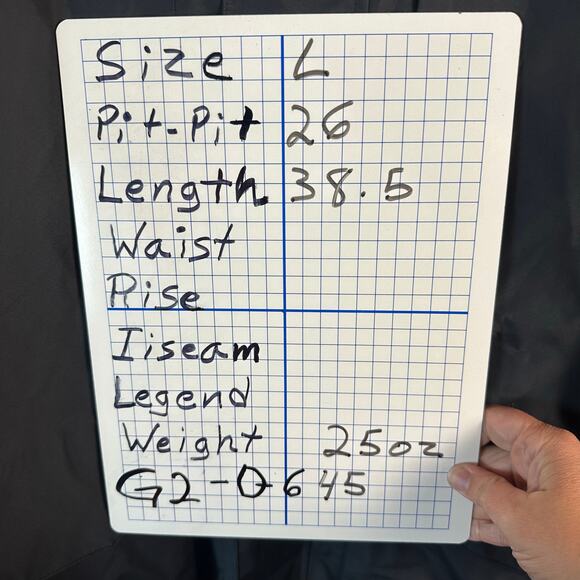 Size L
Pit-Pit 26
Length 38.5
Waist
Rise
Iiseam
Legend
Weight 25oz
G2-0645